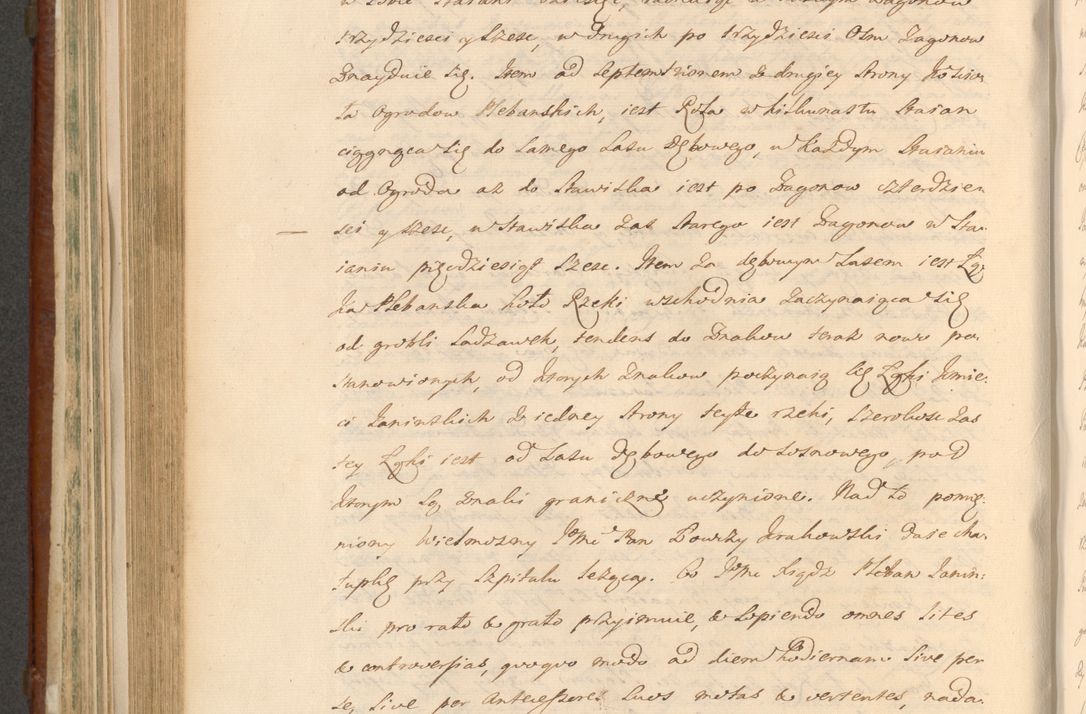 trzydziesci y szesc, w drugich po trzydziesci Osm Zagonow
Znayduie się. Item od Septemtrionem z drugiey Strony Koscio-
ła Ogrodow Plebanskich, iest Rola w kilkunastu Staian
ciągnąca się do samego Lasu Dębowego, w Każdym Staianiu
od Ogroda aż do Stawiska iest po Zagonow czterdzies
sci y szesc, w Stawisku zas Starego iest Zagonow w Sta-
ianiu pięcdziesiąt szesc. Item za dębowym Lasem iest Łą-
ka Plebanska koło Rzeki wschodnia zaczynaiąca się
od grobli Sadzawek, tendens do Znakow teraz nowo po-
stanowionych, od ktorych Znakow poczynaią się Łąki Kmie-
ci Janinskich z iedney Strony teyże rzeki, szerokosc zas
tey Łąki iest od Lasu Dębowego do Sosnowego, pod
ktorym są Znaki graniczne uczynione. Nad to pomie-
niony Wielmozny Jmc Pan Łowczy Krakowski daie cha-
łupkę przy Szpitalu leżącą. Co Jmc Xiądz Pleban Janin-
ski pro rato & grato przyimuie, & sopiendo omnes lites
& controversias, quoquo modo ad diem hodiernam sive per
se, sive per Antecessores suos motas & vertentes, nada-